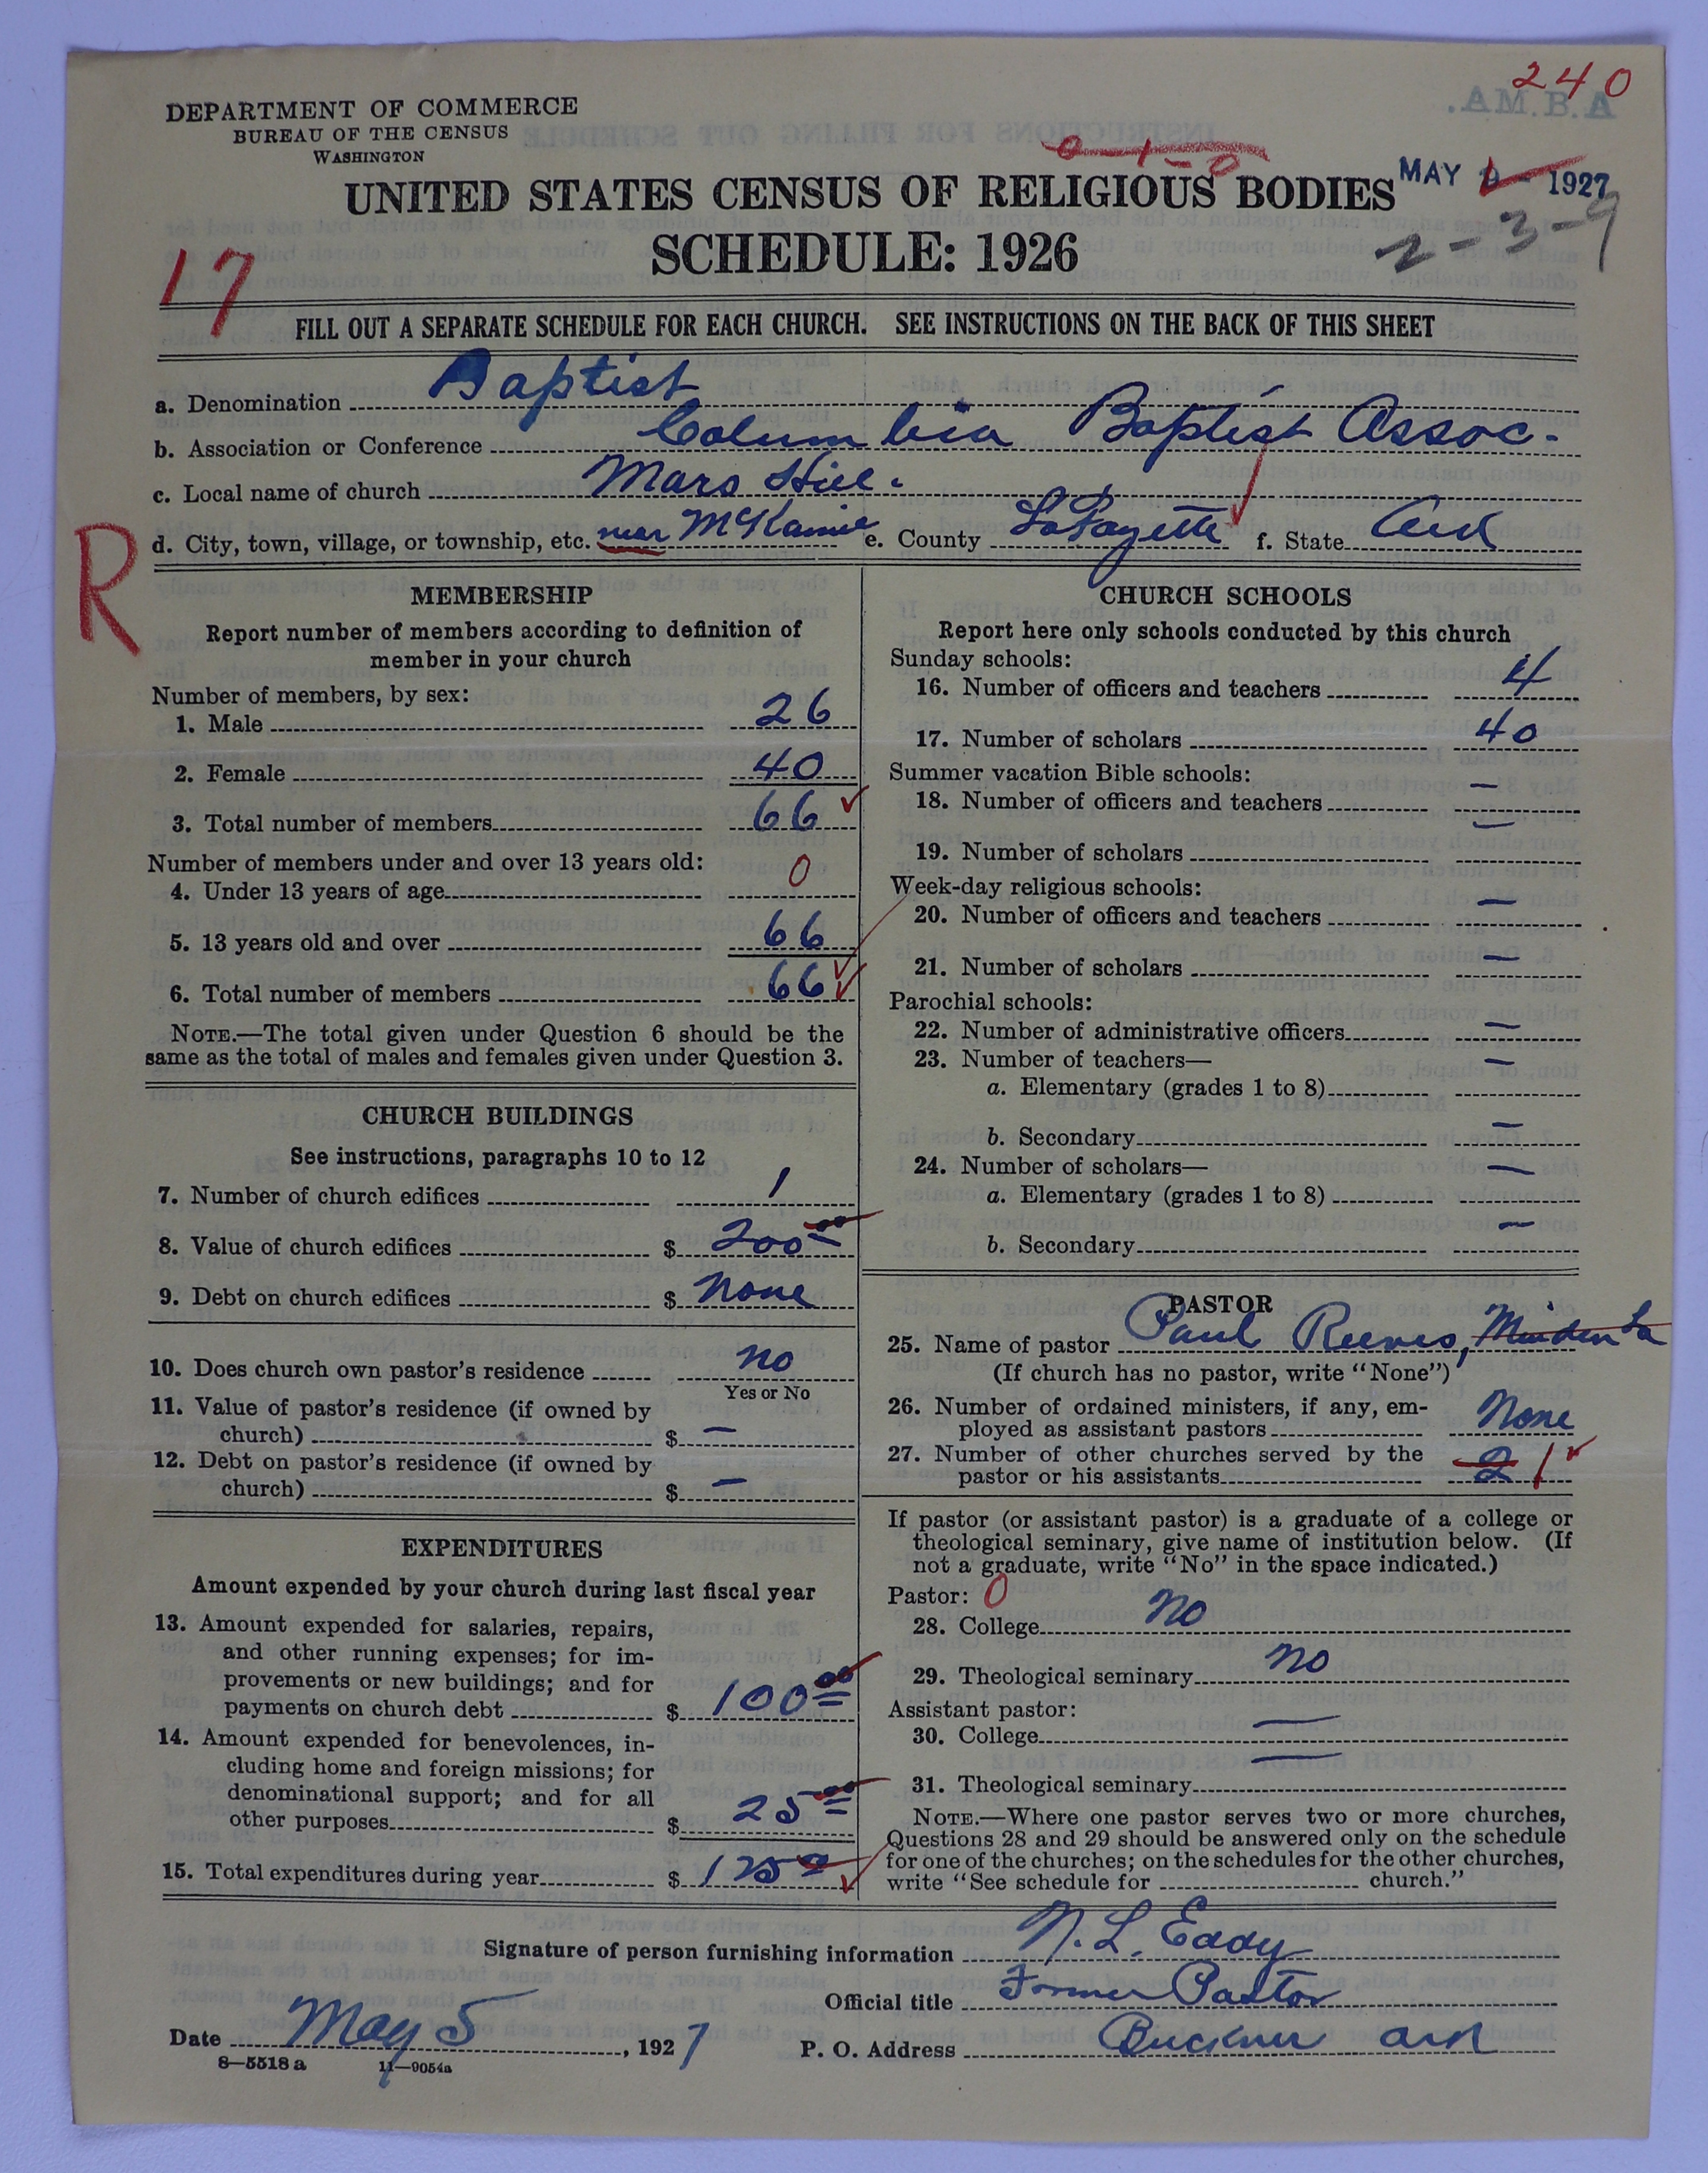 240
A.B.M.A.
DEPARTMENT OF COMMERCE
BUREAU OF THE CENSUS
WASHINGTON
0-1-0
UNITED STATES CENSUS OF RELIGIOUS BODIES
MAY 9 - 1927
SCHEDULE: 1926
2-3-9
17
FILL OUT A SEPARATE SCHEDULE FOR EACH CHURCH. SEE INSTRUCTIONS ON THE BACK OF THIS SHEET
a. Denomination Baptist
b. Association or Conference Columbia Baptist Assoc-
c. Local name of church Mars Hill.
d. City, town, village, or township, etc. near McKamie e. County LaFayette f. State Ark
R
MEMBERSHIP
Report number of members according to definition of
member in your church
Number of members, by sex:
1. Male 26
2. Female 40
3. Total number of members 66
Number of members under and over 13 years old:
4. Under 13 years of age 0
5. 13 years old and over 66
6. Total number of members 66
NOTE.—The total given under Question 6 should be the
same as the total of males and females given under Question 3.
CHURCH BUILDINGS
See instructions, paragraphs 10 to 12
7. Number of church edifices 1
8. Value of church edifices $ 200 00
9. Debt on church edifices $ None
10. Does church own pastor's residence no
Yes or No
11. Value of pastor's residence (if owned by
church) $ —
12. Debt on pastor's residence (if owned by
church) $ —
EXPENDITURES
Amount expended by your church during last fiscal year
13. Amount expended for salaries, repairs,
and other running expenses; for im-
provements or new buildings; and for
payments on church debt $ 100 00
14. Amount expended for benevolences, in-
cluding home and foreign missions; for
denominational support; and for all
other purposes $ 25 00
15. Total expenditures during year $ 125 00
CHURCH SCHOOLS
Report here only schools conducted by this church
Sunday schools:
16. Number of officers and teachers 4
17. Number of scholars 40
Summer vacation Bible schools:
18. Number of officers and teachers —
19. Number of scholars —
Week-day religious schools:
20. Number of officers and teachers —
21. Number of scholars —
Parochial schools:
22. Number of administrative officers —
23. Number of teachers—
a. Elementary (grades 1 to 8) —
b. Secondary —
24. Number of scholars—
a. Elementary (grades 1 to 8) —
b. Secondary —
PASTOR
25. Name of pastor Paul Reeves, Minden La
(If church has no pastor, write "None")
26. Number of ordained ministers, if any, em-
ployed as assistant pastors None
27. Number of other churches served by the
pastor or his assistants 2 1
If pastor (or assistant pastor) is a graduate of a college or
theological seminary, give name of institution below. (If
not a graduate, write "No" in the space indicated.)
Pastor: 0
28. College no
29. Theological seminary no
Assistant pastor:
30. College —
31. Theological seminary —
NOTE.—Where one pastor serves two or more churches,
Questions 28 and 29 should be answered only on the schedule
for one of the churches; on the schedules for the other churches,
write "See schedule for church."
Signature of person furnishing information N. L. Eady
Official title Former Pastor
Date May 5, 1927
P. O. Address Buckner Ark
8—5518 a 11—9054a